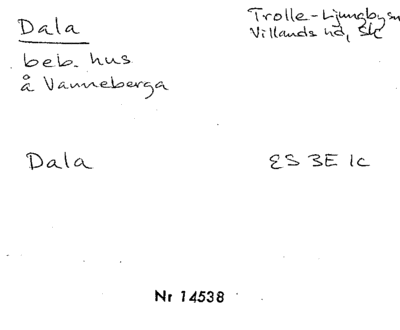 Dala
Trolle-Ljungbysn
Villands hd, Sk
beb. hus
å Vanneberga
Dala
ES 3E 1c
Nr 14538